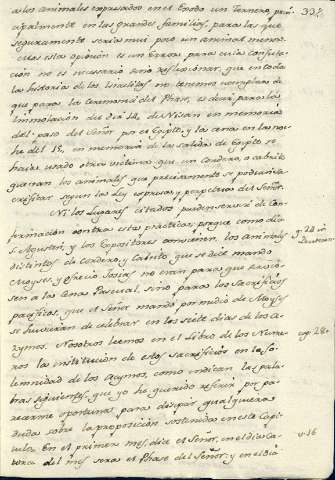 a los animales expresados en el Exodo un Ternero, prin 397.
cipalmente en las grandes familias, para las que
seguramente seria mui poco un animal menor.
Mas esta opinion es un Error, para cuia confuta-
cion no es necesario sino reflexionar, que en toda
la historia de los Israelitas no tenemos exemplar de
que para la ceremonia del Phase, es decir para la
immolacion del dia 14, de Nisan en memoria
del paso del Señor por el Egipto, y la cena en la no-
che del 15, en memoria de la salida de Egipto se
hacia usado otra victima que un Cordero, o cabrito
que eran los animales que precisamente se podian sa-
crificar segun la ley expresa, y perpetua del Señor.
Ni los lugares citados pueden servir de Con-
firmacion contra esta practica; porque como dice
S. Agustin, y los Expositores convienen, los animales q. 24 in
distintos de Cordero, y Cabrito, que se dice mando
Moyses, y ofrecio Josias no eran para que sirvie-
sen a la Cena Pascual, sino para los sacrificios
pacificos, que el Señor mando por medio de Moyses
se huviesen de celebrar en los siete dias de los A-
zymos. Nosotros leemos en el Libro de los Nume- cap. 28.
ros la institucion de estos sacrificios en la so-
lemnidad de los Azymos, como indican las pala-
bras siguientes, que yo he querido referir por pa-
recerme oportunas para disipar qualquiera
duda sobre la proposicion sostenida en este Capi-
tulo. En el primer mes, dice el Señor, en el dia Ca- v. 16
torce del mes sera el Phase del Señor, y en el dia